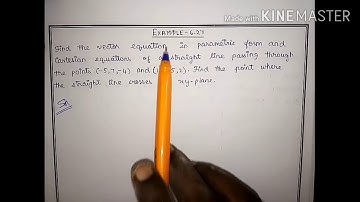 Made with KINEMASTER
EXAMPLE-6.27
Find the vector equation in parametric form and
Cartesian equations of straight line passing through
the points (-5,7,-4) and 5,2). Find the point where
the straight line crosses xy-plane.